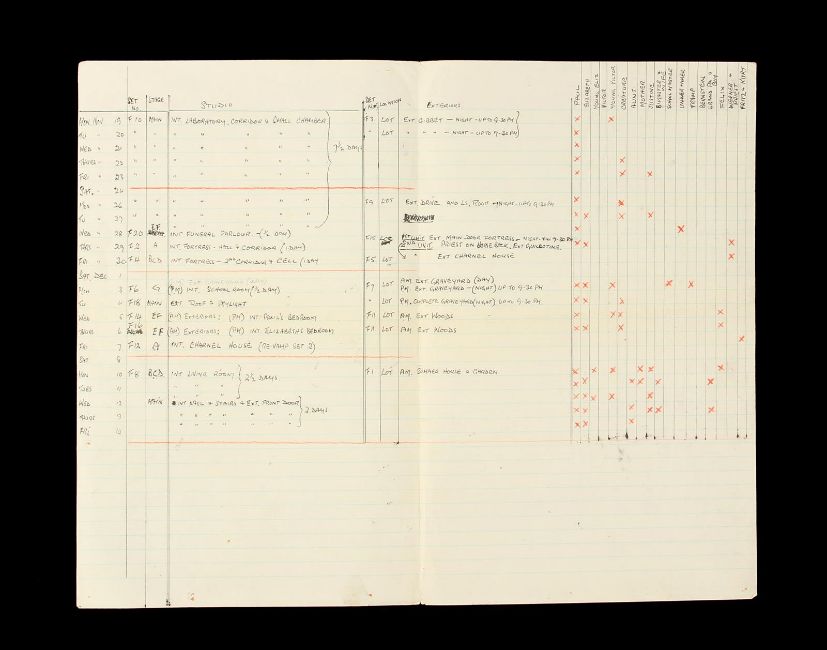 SET NO. STAGE STUDIO SET No. LOCATION EXTERIORS PAUL ELIZABETH YOUNG ELIZ VICTOR YOUNG VICTOR CREATURE AUNT MOTHER JUSTINE UNDERTAKER TRAMP BERNSTEIN FELIX WARDER + PRIEST FRITZ + KURT
MON NOV 19 F 10 MAIN INT LABORATORY, CORRIDOR & SMALL CHAMBER F3 LOT EXT GIBBET - NIGHT - UPTO 9-30PM
TU " 20 " " " " " " " LOT " " " - NIGHT - UPTO 9-30PM
WED " 21 " " " " " " 7½ DAYS
THURS " 22 " " " " " "
FRI " 23 " " " " " "
SAT. " 24
MON " 26 " " " " " " LOT EXT DRIVE AND LS, ROOF - NIGHT - UPTO 9-30PM
TU " 27 " " " " " "
WED " 28 F 20 EF INT FUNERAL PARLOUR - (½ DAY)
THRS " 29 F 2 A INT FORTRESS - HALL & CORRIDOR (1 DAY) F15 1ST UNIT EXT MAIN DOOR FORTRESS - NIGHT - 9-30 PM
2ND UNIT PRIEST ON HORSEBACK, EXT GUILLOTINE.
FRI " 30 F 4 BCD INT FORTRESS - 2ND CORRIDOR & CELL (1 DAY F5 LOT " EXT CHARNEL HOUSE
SAT. DEC 1
MON 3 F 6 G (PM) INT. SCHOOL ROOM (½ DAY) F7 LOT AM EXT GRAVEYARD (DAY)
PM EXT GRAVEYARD - (NIGHT) UP TO 9-30 PM
TU 4 F18 MAIN EXT ROOF & SKYLIGHT " LOT PM, COMPLETE GRAVEYARD (NIGHT) UPTO 9-30 PM.
WED 5 F14 EF (AM) EXTERIORS: (PM) INT PAUL'S BEDROOM F11 LOT AM. EXT WOODS
THURS 6 F16 EF (AM) EXTERIORS; (PM) INT ELIZABETH'S BEDROOM F11 LOT AM. EXT WOODS
FRI 7 F12 A INT. CHARNEL HOUSE (RE-VAMP SET 2)
SAT 8
MON 10 F 8 BCD INT LIVING ROOM 2½ DAYS F1 LOT AM. SUMMER HOUSE & GARDEN
TUES 11 " " "
WED 12 MAIN INT HALL & STAIRS & EXT. FRONT DOOR 2 DAYS
THURS 13 " " " " " " "
FRI 14 " " " " " " "